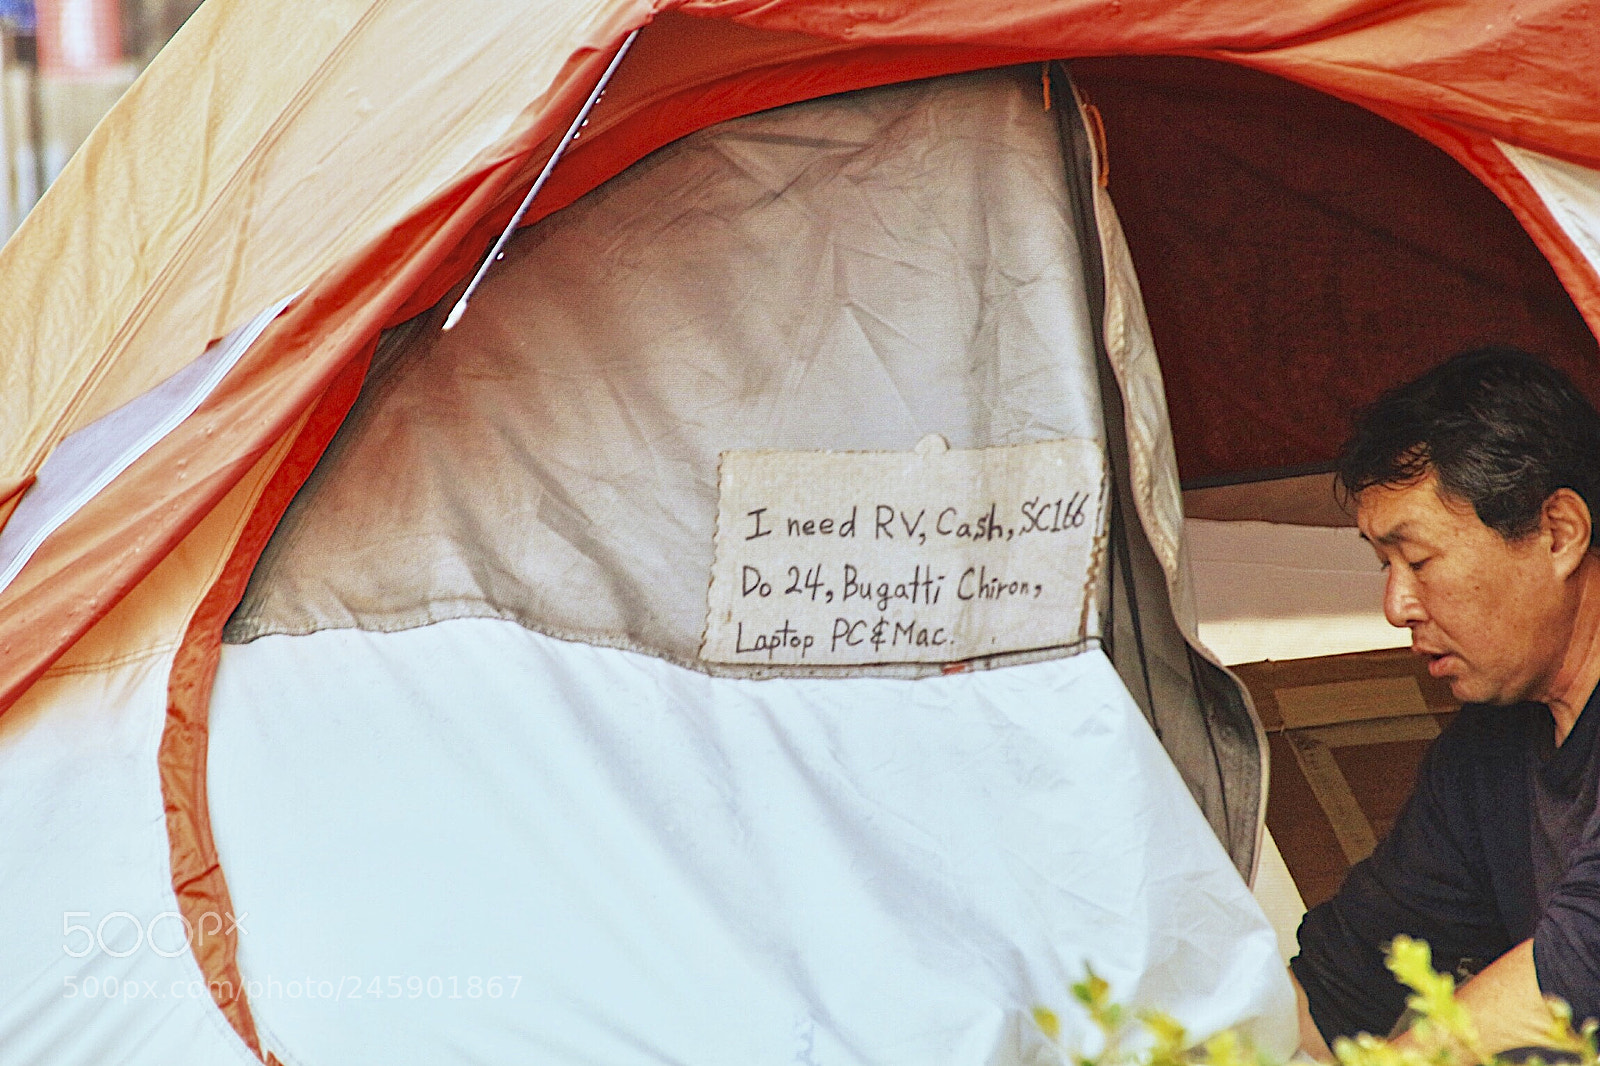 I need RV, Cash, SC166
Do 24, Bugatti Chiron,
Laptop PC & Mac.
500px
500px.com/photo/245901867